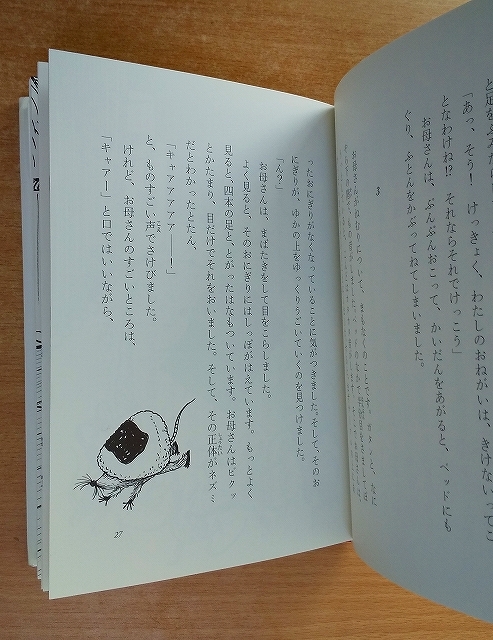 と足を
「あっ、そう！　けっきょく、わたしのおねがいは、きけないってこ
となわけね!?　それならそれでけっこう」
お母さんは、ぷんぷんおこって、かいだんをあがると、ベッドにも
ぐり、ふとんをかぶってねてしまいました。
3
お母さんがねむりについて、まもなくのことです。ガタンと、なに
ったおにぎりがなくなっていることに気がつきました。そして、そのお
にぎりが、ゆかの上をゆっくりうごいていくのを見つけました。
「んっ？」
お母さんは、まばたきをして目をこらしました。
よく見ると、そのおにぎりにはしっぽがはえています。もっとよく
見ると、四本の足と、とがったはなもついています。お母さんはビクッ
とかたまり、目だけでそれをおいました。そして、その正体がネズミ
だとわかったとたん、
「キャアアアアア――！」
と、ものすごい声でさけびました。
けれど、お母さんのすごいところは、
「キャアー」と口ではいいながら、
27